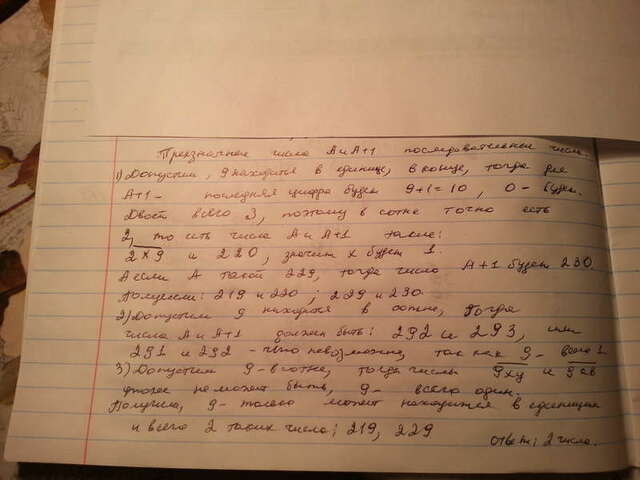 Трехзначные числа А и А+1 последовательные числа.
1) Допустим, 9 находится в единице, в конце, тогда для
А+1 - последняя цифра будет 9+1=10, 0 - будет.
Двоек всего 3, поэтому в сотне точно есть
2, то есть числа А и А+1 такие:
2x9 и 220, значит x будет 1.
А если А такой 229, тогда число А+1 будет 230.
Получили: 219 и 220; 229 и 230.
2) Допустим 9 находится в сотне, тогда
числа А и А+1 должен быть: 292 и 293, или
291 и 292 - что невозможно, так как 9 - всего 1
3) Допустим 9 - в сотке, тогда числа 9xy и 9ав
не может быть, 9 - всего один.
Получили, 9 - только может находится в единицах
и всего 2 таких числа: 219, 229
ответ: 2 числа.